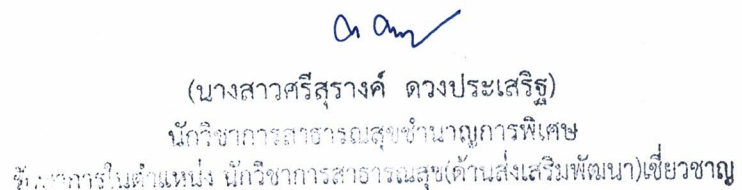 (นางสาวศรีสุรางค์ ดวงประเสริฐ)
นักวิชาการสาธารณสุขชำนาญการพิเศษ
รักษาการในตำแหน่ง นักวิชาการสาธารณสุข(ด้านส่งเสริมพัฒนา)เชี่ยวชาญ